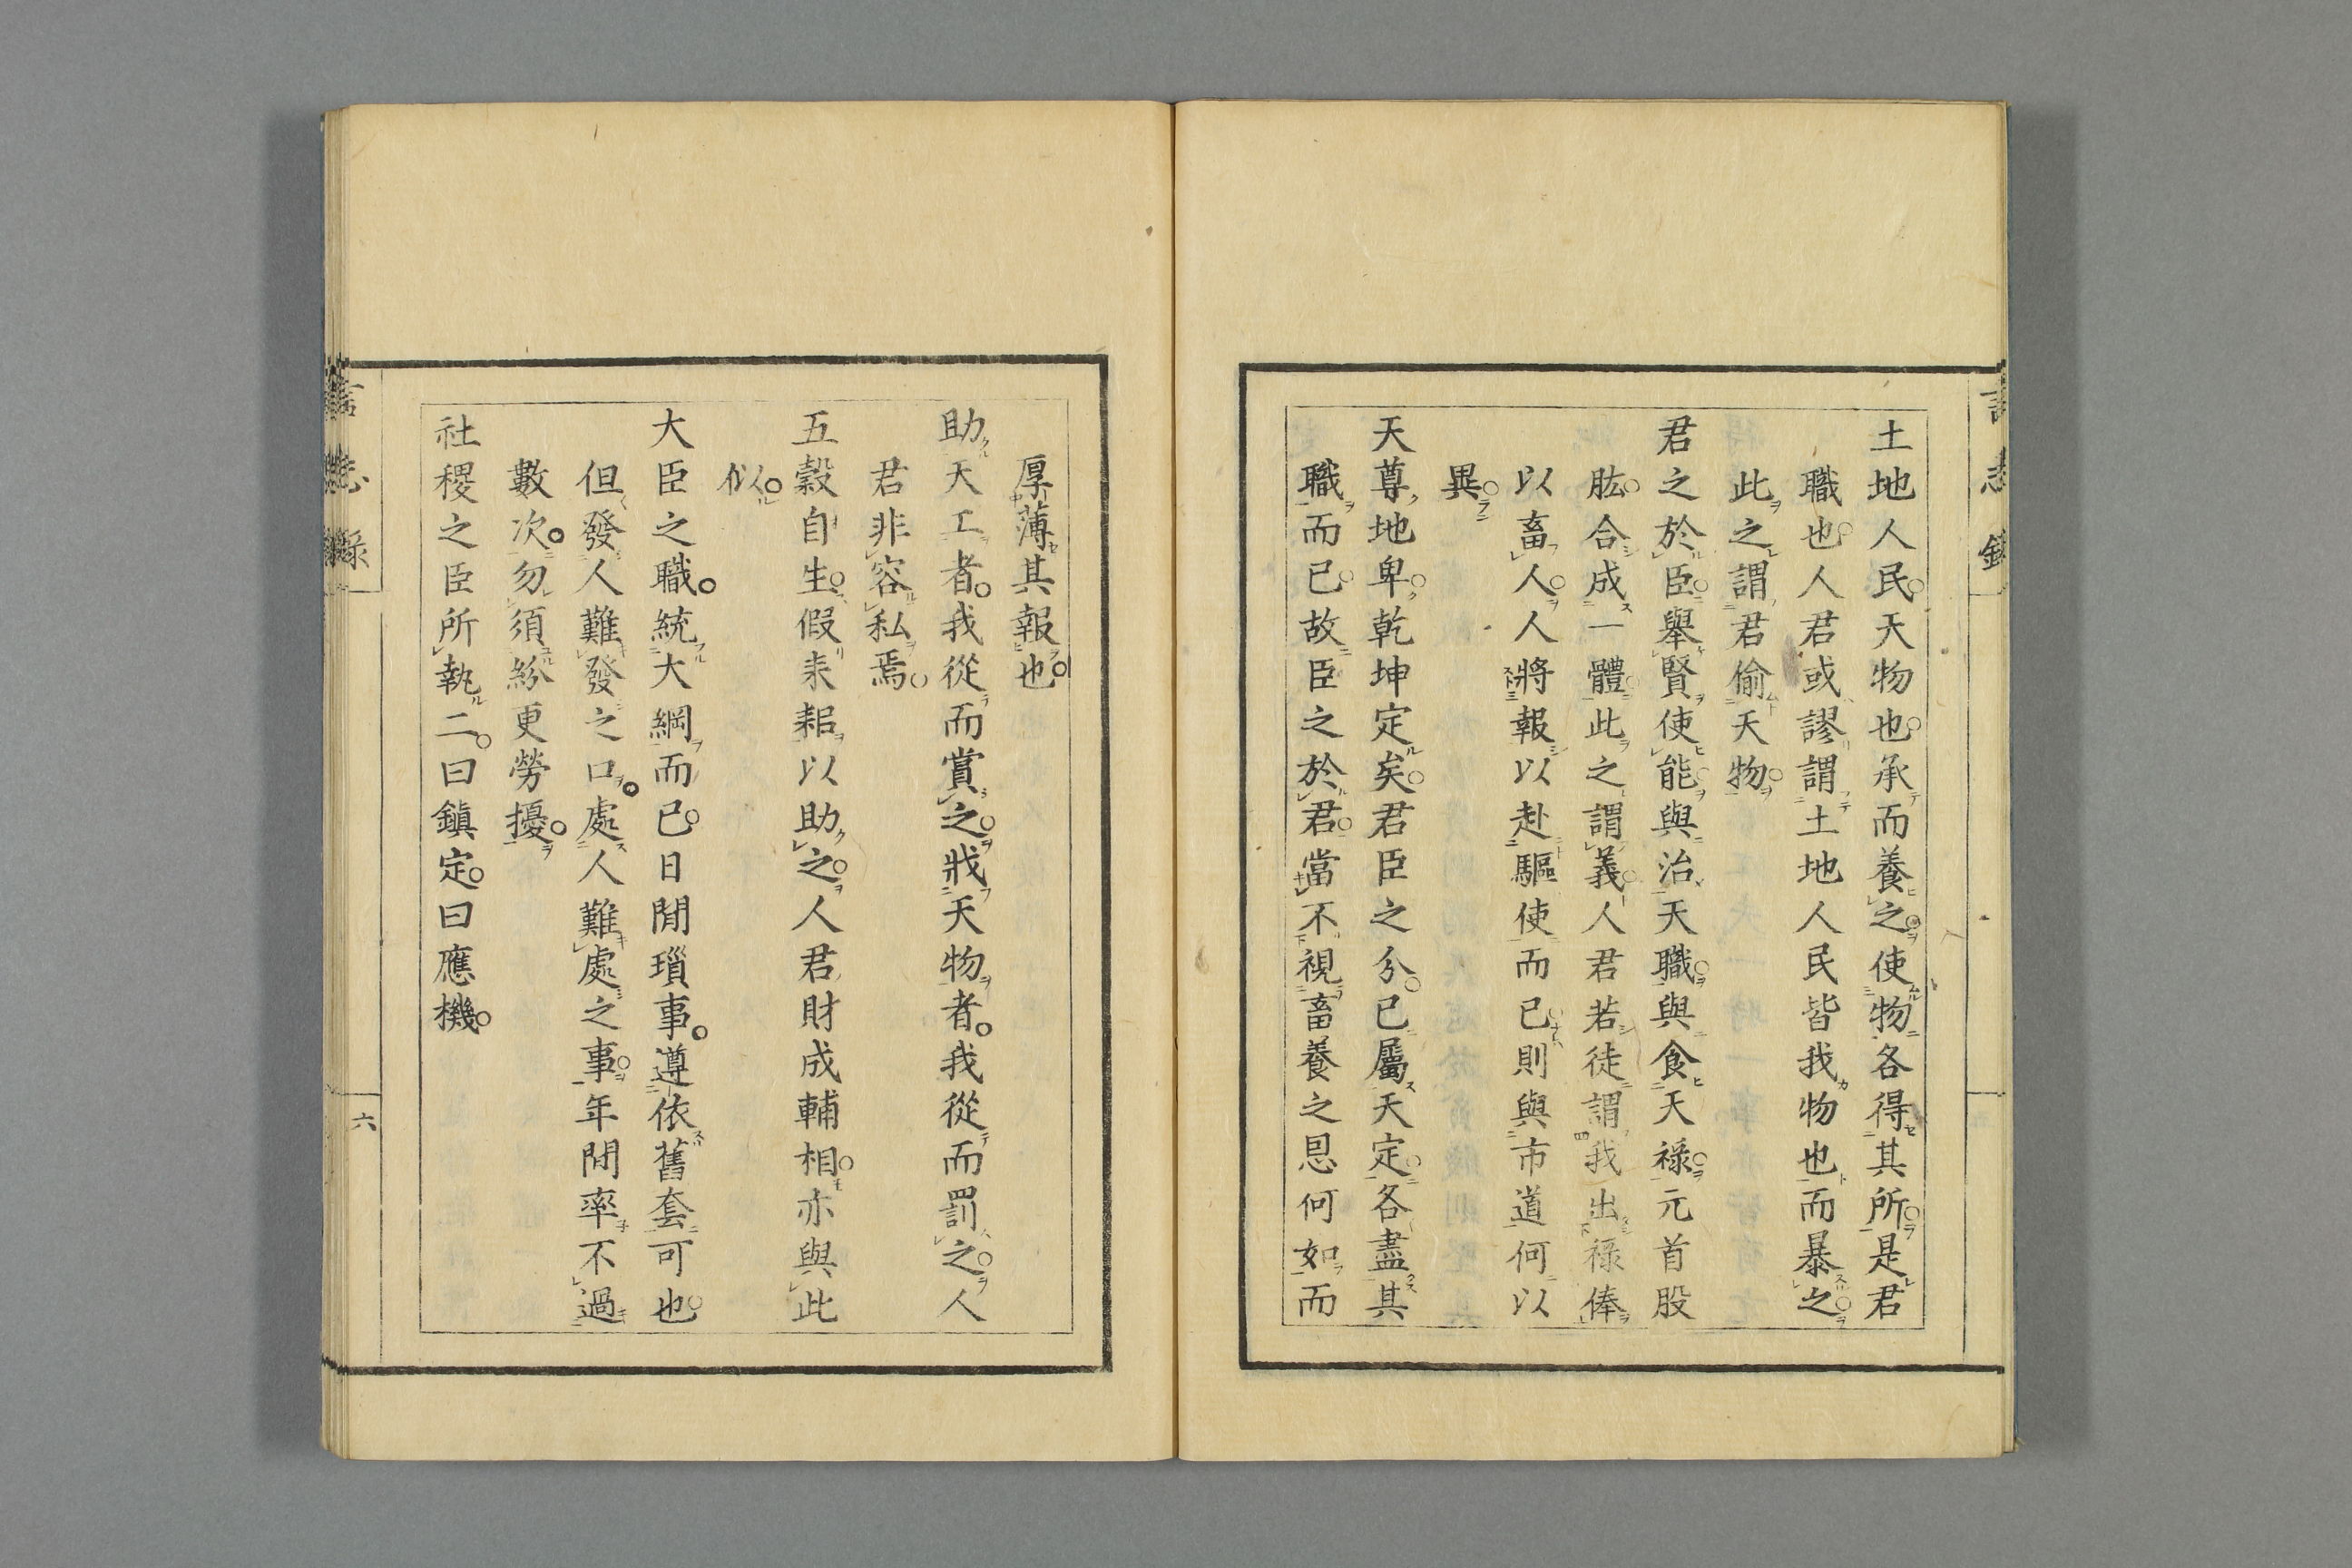 土地人民。天物也。承而養之。使物各得其所。是君
職也。人君或謬謂土地人民皆我物也而暴之。
此之謂君偷天物。
君之於臣。舉賢使能。與治天職。與食天祿。元首股
肱。合成一體。此之謂義。人君若徒謂我出祿俸
以畜人。人將報以赴驅使而已。則與市道何以
異。
天尊地卑。乾坤定矣。君臣之分。已屬天定。各盡其
職而已。故臣之於君。當不視畜養之恩何如而
厚薄其報也。
助天工者。我從而賞之。戕天物者。我從而罰之。人
君非容私焉。
五穀自生。假耒耜以助之。人君財成輔相。亦與此
似。
大臣之職。統大綱而已。日間瑣事。遵依舊套可也。
但發人難發之口。處人難處之事。年間率不過
數次。勿須紛更勞擾。
社稷之臣所執二。曰鎮定。曰應機。
言志錄
六